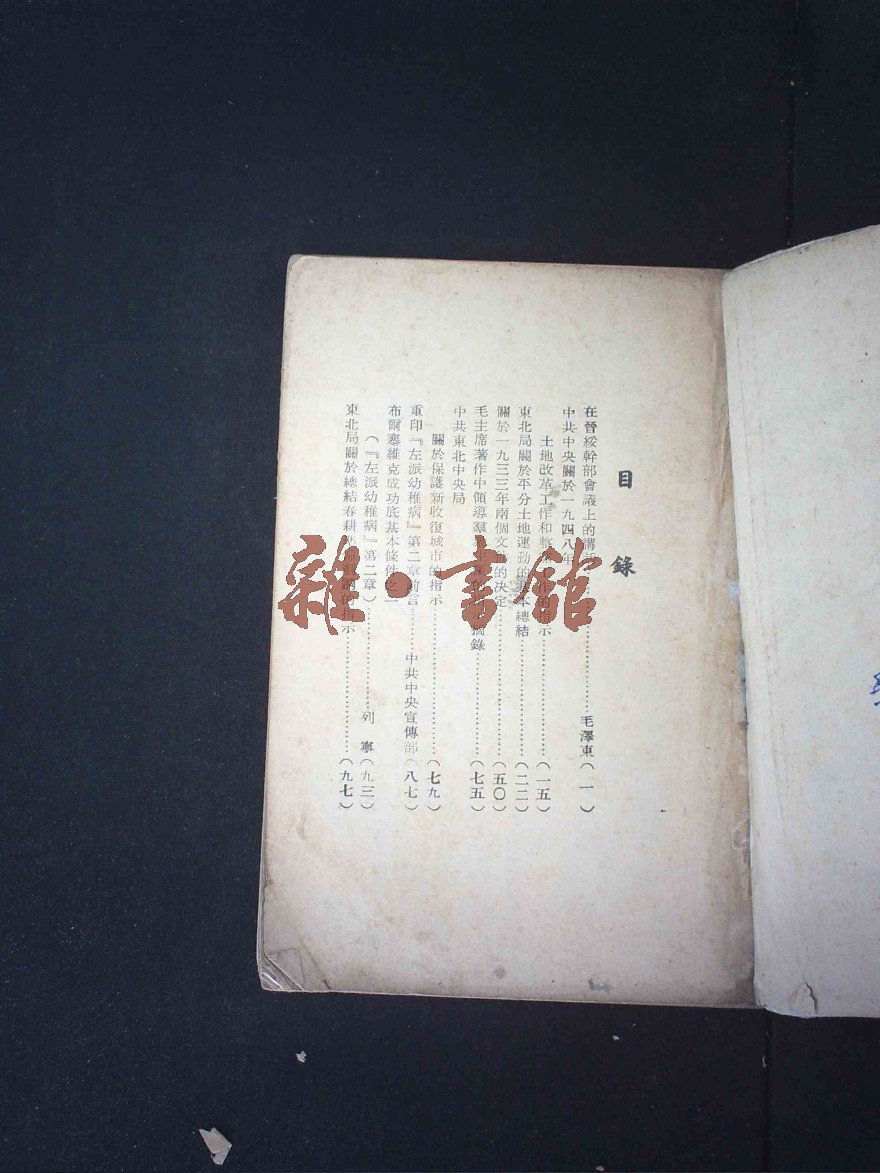 目錄
在晉綏幹部會議上的講話……毛澤東(一)
中共中央關於一九四八年
土地改革工作和整 作的指示……(一五)
東北局關於平分土地運動的基本總結……(二二)
關於一九三三年兩個文件的決定……(五〇)
毛主席著作中領導羣 摘錄……(七五)
中共東北中央局
關於保護新收復城市的指示……(七九)
重印『左派幼稚病』第二章前言……中共中央宣傳部(八七)
布爾塞維克成功底基本條件之一
(『左派幼稚病』第二章)……列寧(九三)
東北局關於總結春耕 的指示……(九七)
雜·書館